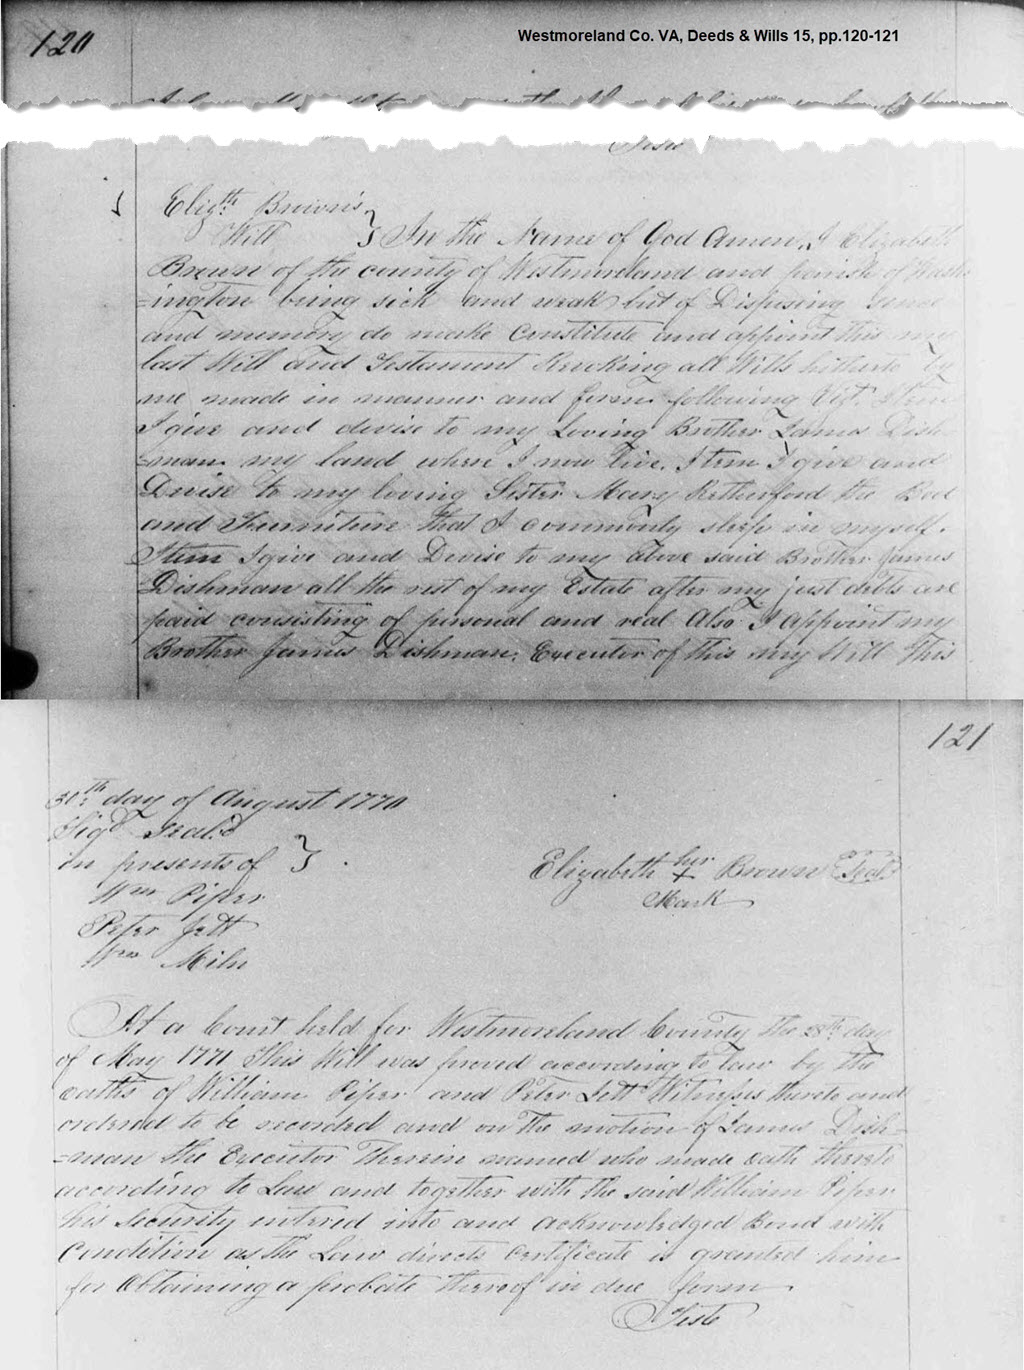 120
Westmoreland Co. VA, Deeds & Wills 15, pp.120-121
Teste
Eliz.th Brown's
Will } In the Name of God Amen, I Elizabeth
Brown of the county of Westmoreland and parish of Wash
=ington being sick and weak but of Disposing sence
and memory do make Constitute and appoint this my
last Will and Testament Revoking all Wills hitherto by
me made in manner and form following Vizt. Item
I give and devise to my Loving Brother James Dish
=man my land where I now live. Item I give and
Devise to my loving Sister Mary Rutherford the Bed
and Furniture that I commonly sleep in myself.
Item I give and Devise to my above said Brother James
Dishman all the rest of my Estate after my just debts are
paid consisting of personal and real Also I appoint my
Brother James Dishman, Executor of this my Will This
121
30th day of August 1770
Sigd Seal'd
in presents of }
Wm Piper
Peter Jett
Wm Miln
Elizabeth her + Brown Seal
Mark
At a Court held for Westmoreland County the 28th day
of May 1771 This Will was proved according to law by the
oaths of William Piper and Peter Jett Witnesses thereto and
ordered to be recorded and on the motion of James Dish=
=man the Executor Therein named who made oath thereto
according to Law and together with the said William Piper
his Security entered into and acknowledged Bond with
Condition as the Law directs Certificate is granted him
for Obtaining a probate thereof in due form
Teste